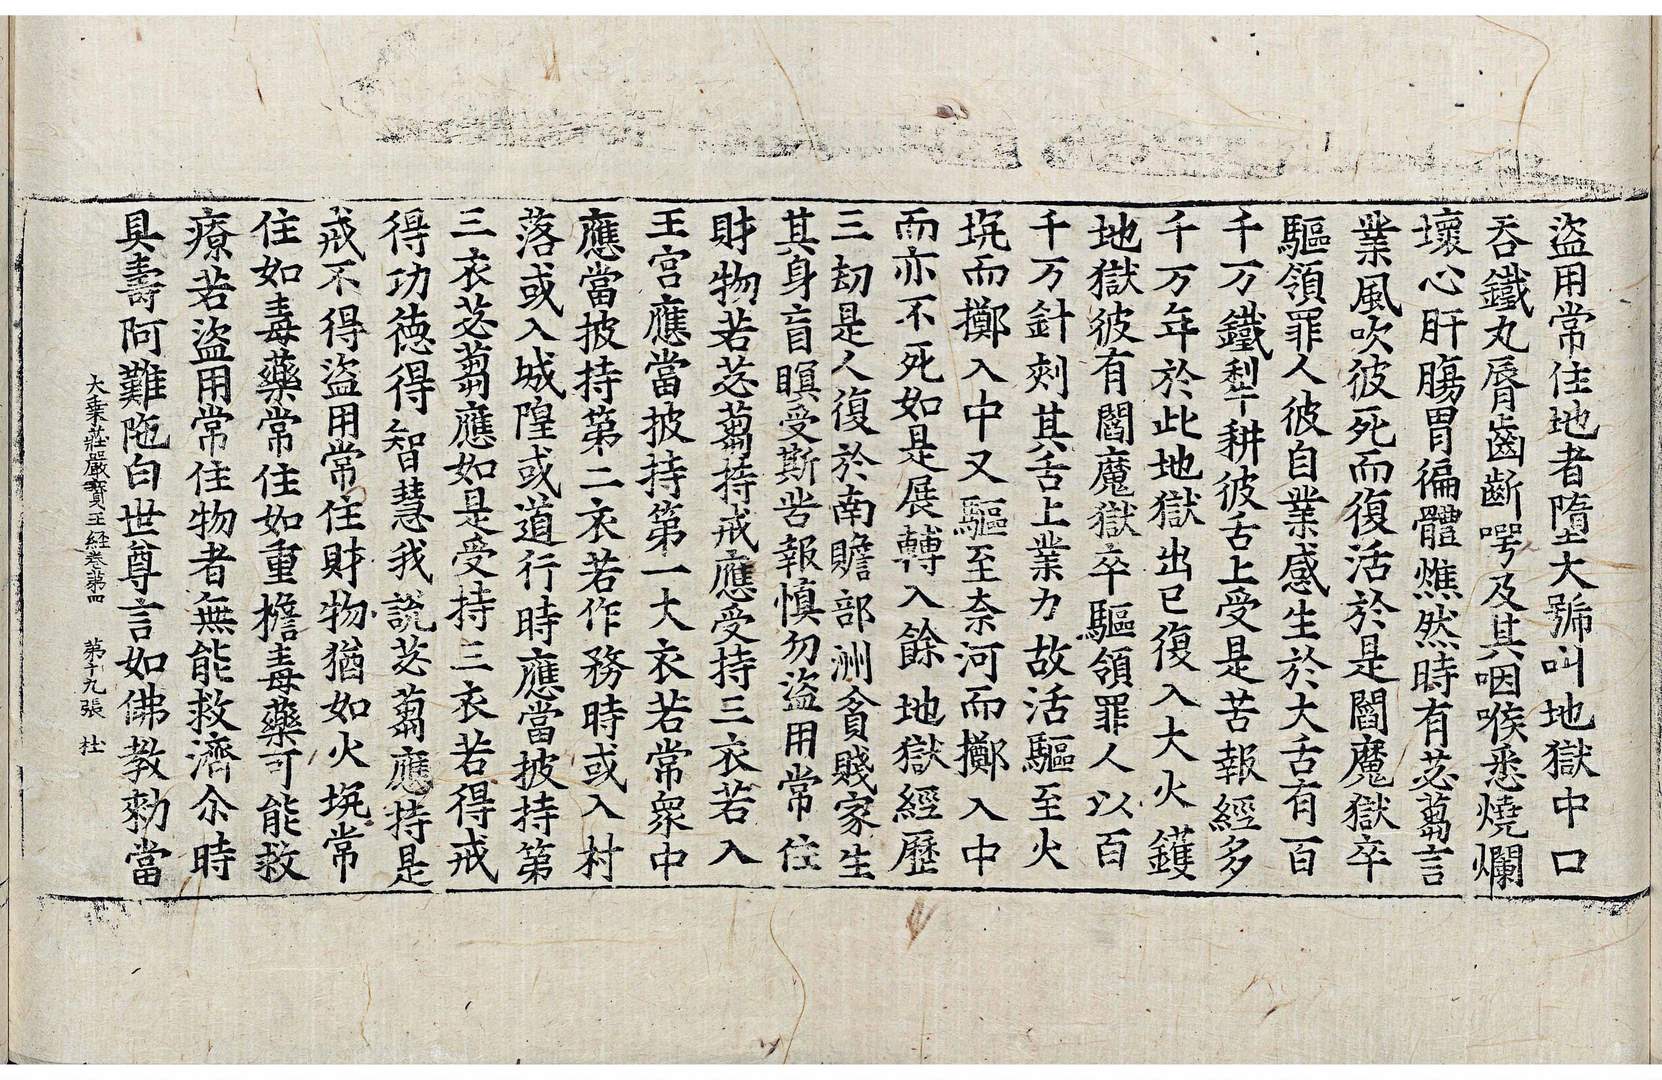 盜用常住地者墮大號叫地獄中口
吞鐵丸脣齒齗㗁及其咽喉悉燒爛
壞心肝腸胃徧體燋然時有苾蒭言
業風吹彼死而復活於是閻魔獄卒
驅領罪人彼自業感生於大舌有百
千万鐵犁耕彼舌上受是苦報經多
千万年於此地獄出已復入大火鑊
地獄彼有閻魔獄卒驅領罪人以百
千万針刾其舌上業力故活驅至火
坑而擲入中又驅至奈河而擲入中
而亦不死如是展轉入餘地獄經歷
三劫是人復於南贍部洲貧賤家生
其身盲瞑受斯苦報慎勿盜用常住
財物若苾蒭持戒應受持三衣若入
王宮應當披持第一大衣若常衆中
應當披持第二衣若作務時或入村
落或入城隍或道行時應當披持第
三衣苾蒭應如是受持三衣若得戒
得功德得智慧我說苾蒭應持是
戒不得盜用常住財物猶如火坑常
住如毒藥常住如重擔毒藥可能救
療若盜用常住物者無能救濟尒時
具壽阿難陁白世尊言如佛教勑當
大乗莊嚴寳王經卷第四 第十九張 杜